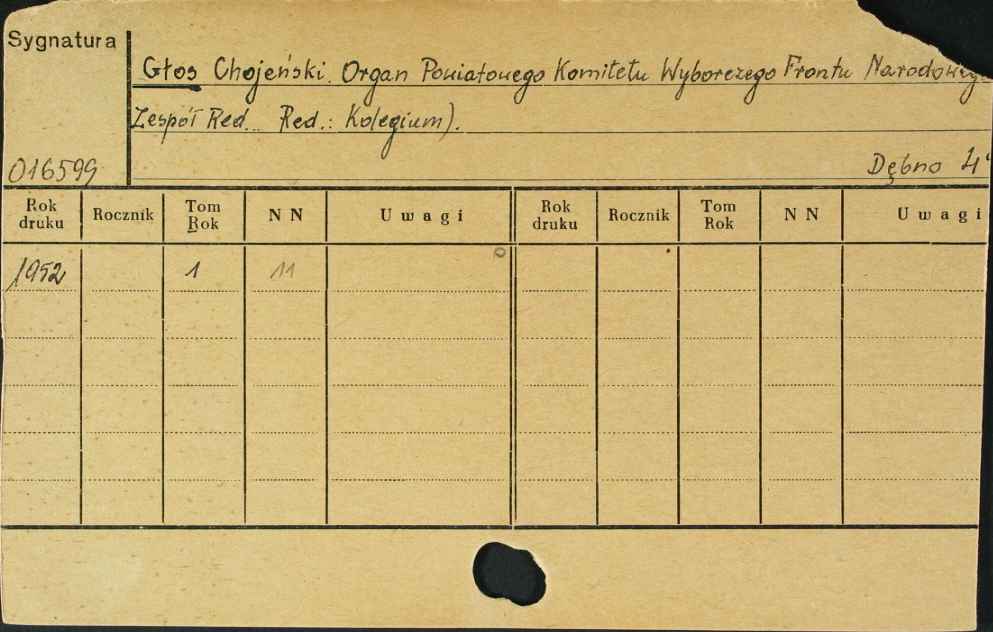 Sygnatura
Głos Chojeński. Organ Powiatowego Komitetu Wyborczego Frontu Narodowego
Zespół Red. Red.: Kolegium).
016599
Dębno 4°
Rok druku Rocznik Tom Rok NN Uwagi Rok druku Rocznik Tom Rok NN Uwagi
1952 1 11